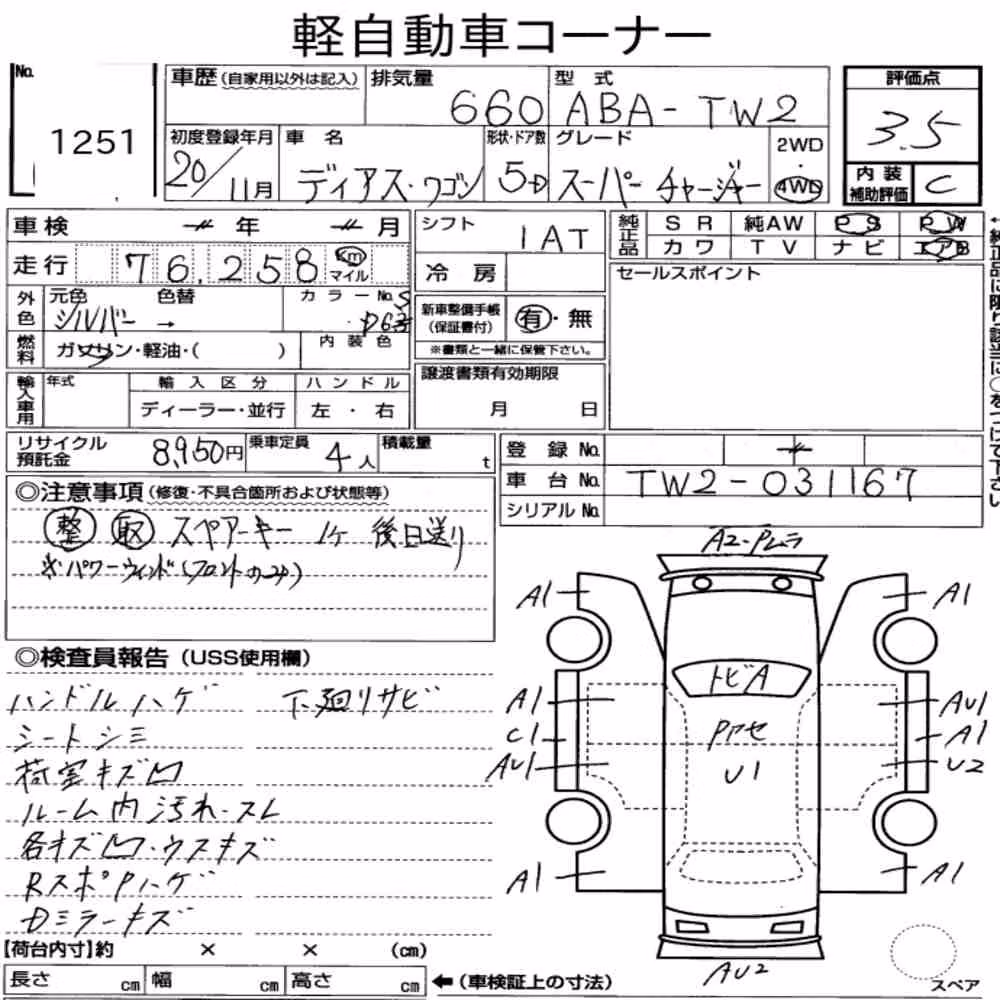 軽自動車コーナー
No. 1251
車歴(自家用以外は記入) 排気量 660 型式 ABA-TW2
評価点 3.5
初度登録年月 20/11月 車名 ディアス・ワゴン 形状・ドア数 5D グレード スーパーチャージャー 2WD・4WD
内装補助評価 C
車検 年 月
シフト 1AT
純正品 SR 純AW PS PW
カワ TV ナビ エアB
走行 76,258 Km マイル
冷房
セールスポイント
←純正品に限り該当に○をつけて下さい
外色 元色 シルバー 色替 → カラーNo. D6S
新車整備手帳(保証書付) 有・無
※書類と一緒に保管下さい。
燃料 ガソリン・軽油・( ) 内装色
輸入車用 年式 輸入区分 ハンドル
ディーラー・並行 左・右
譲渡書類有効期限
月 日
リサイクル預託金 8,950円 乗車定員 4人 積載量 t
登録No.
車台No. TW2-031167
シリアルNo.
◎注意事項(修復・不具合箇所および状態等)
整 取 スペアーキー 1ケ 後日送り
※パワーウィンド(フロントのみ)
◎検査員報告(USS使用欄)
ハンドルハゲ 下廻りサビ
シートシミ
荷室キズ凹
ルーム内汚れ・スレ
各キズ凹・ウスキズ
RスポPハゲ
Dミラーキズ
A2-Pムラ
A1 A1
トビA
A1 AU1
C1 Pアセ A1
AU1 U1 U2
A1 A1
AU2
スペア
【荷台内寸】約 × × (cm)
長さ cm 幅 cm 高さ cm ←(車検証上の寸法)